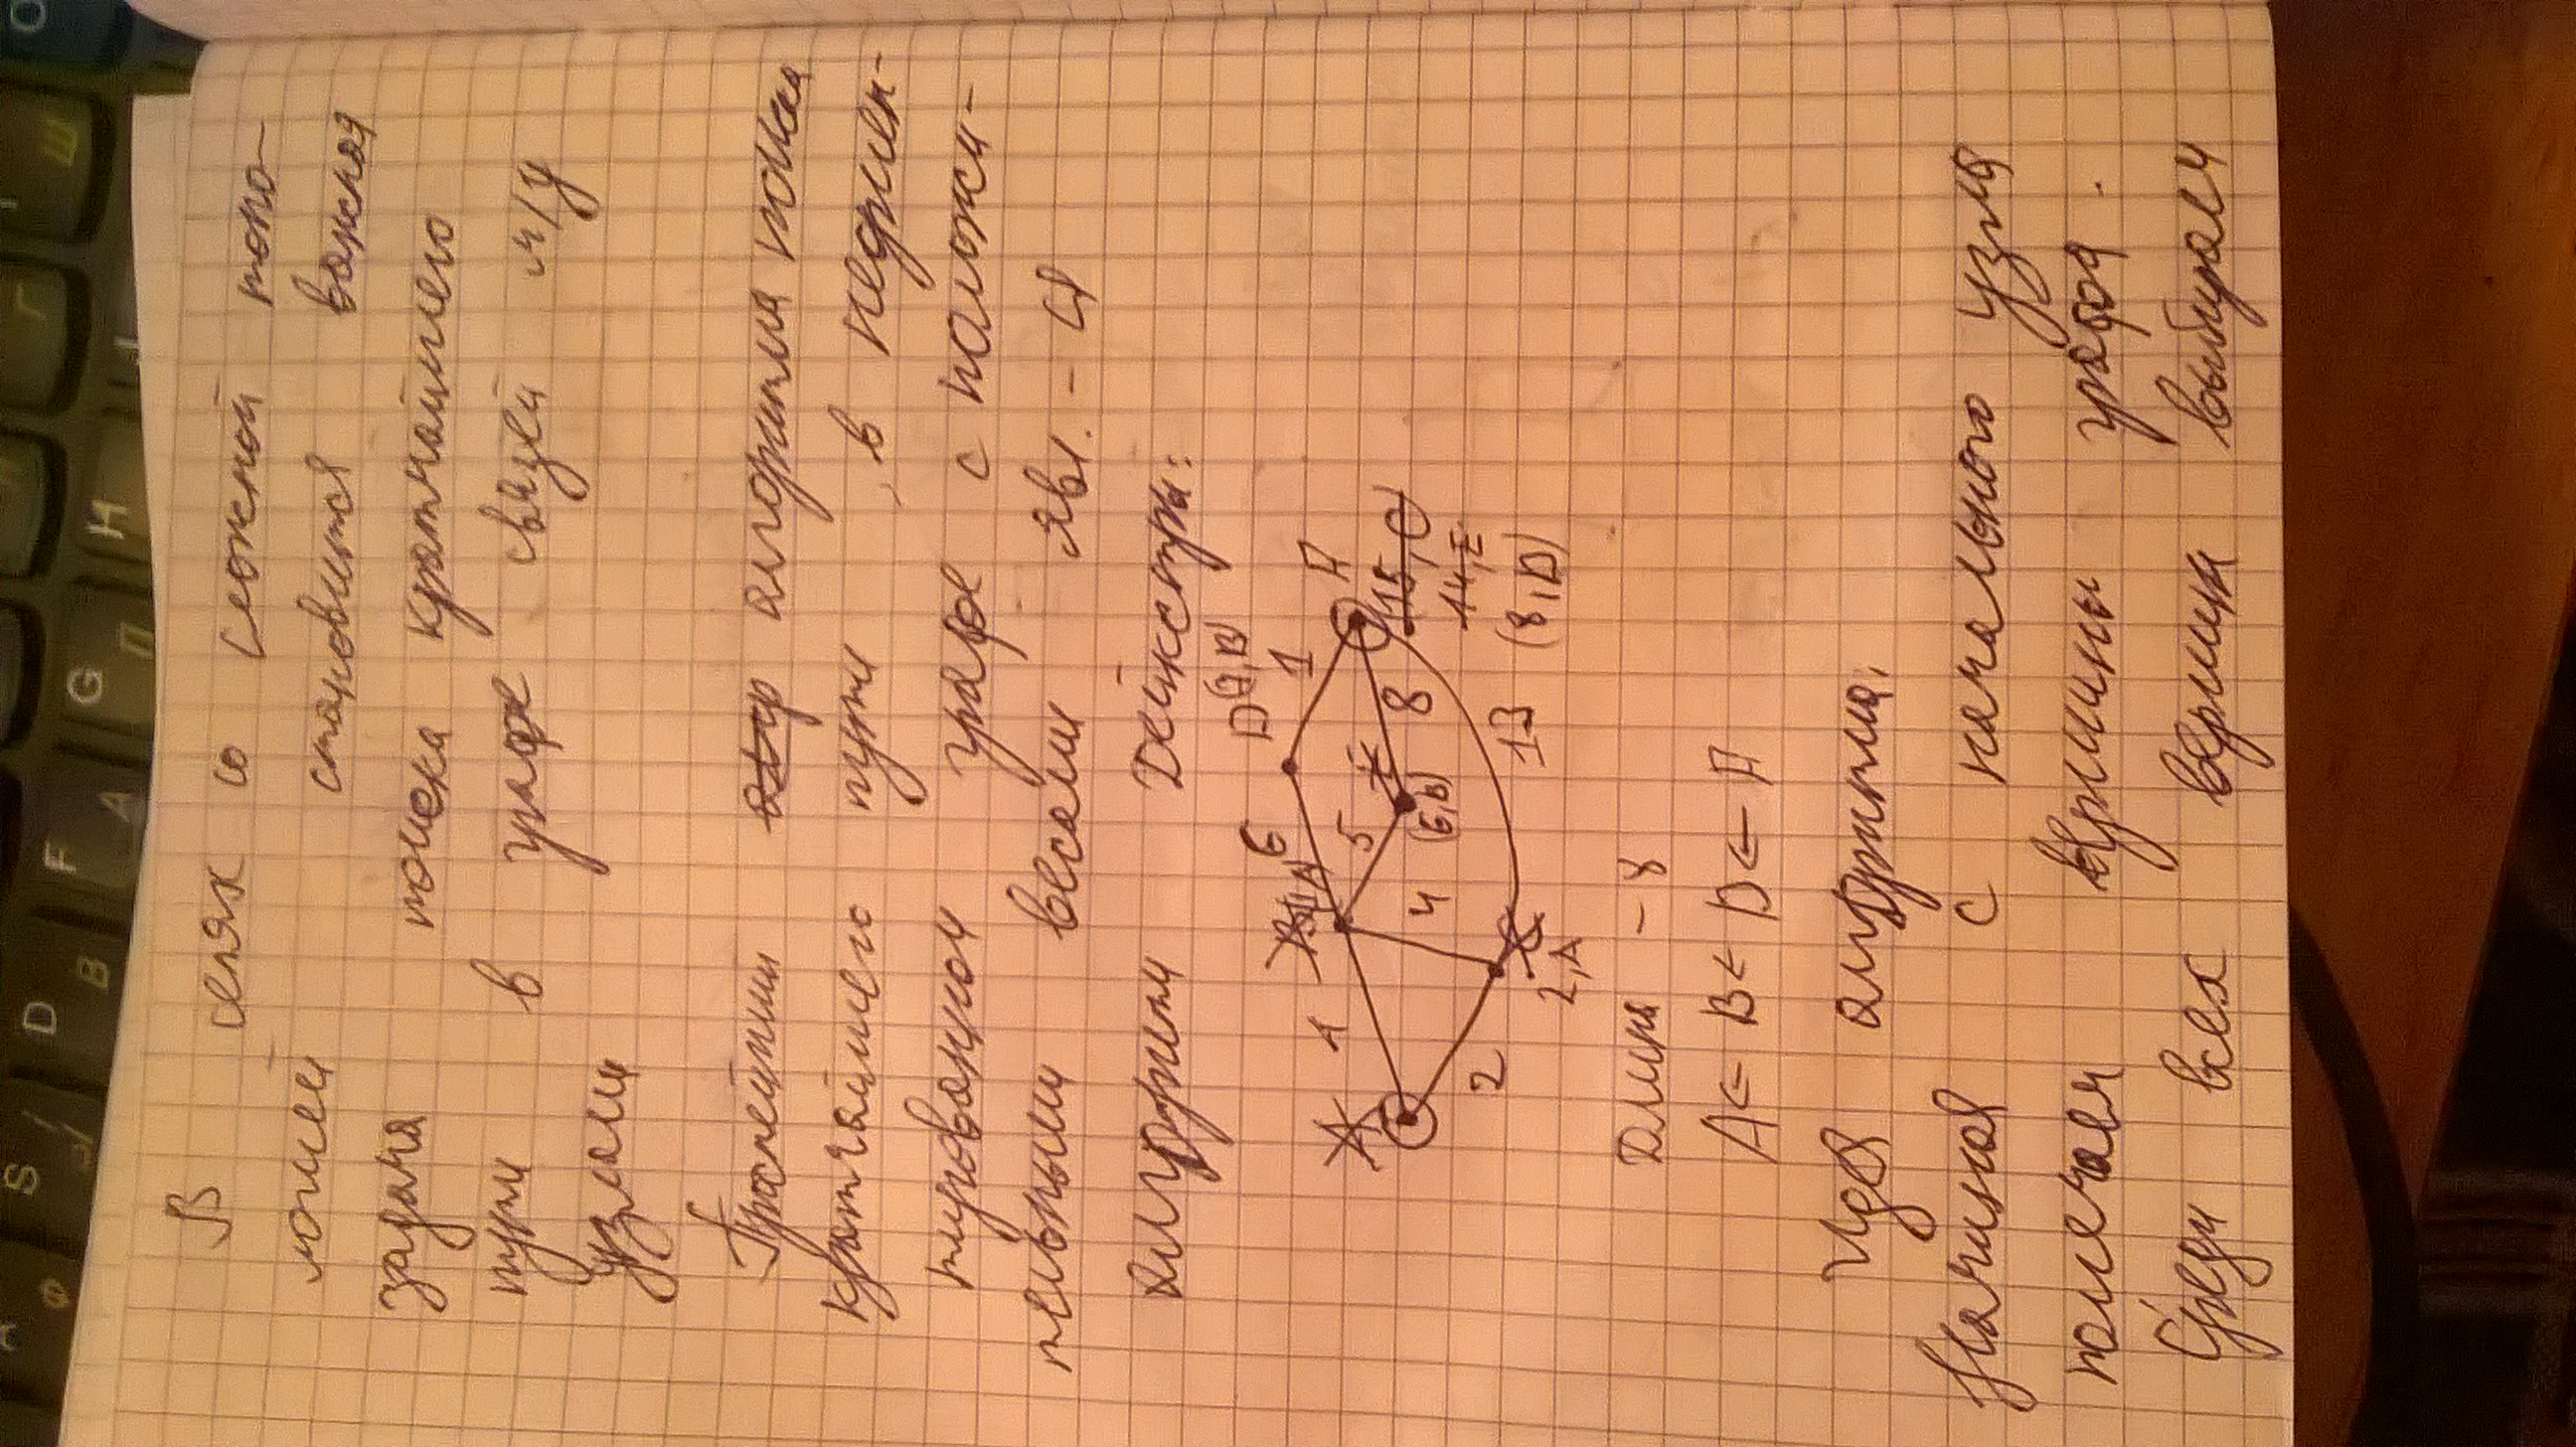 S Ы
D В
F А
G П
H
Г
Ш
Ф
В сетях со сложной топо-
логией становится важная
задача поиска кратчайшего
пути в графе связей м/д
узлами
Простейший алгоритма поиска
кратчайшего пути , в неориен-
тированном графе с положи-
тельными весами явл. - ся
алгоритм Дейкстры:
D (7,B)
B (1,A) 6
1
A 1
F
5 E
(15, C)
4 (6,B) 8
14,E
2
C 13 (8,D)
2,A
Длина - 8
A ← B ← D ← F
Идея алгоритма.
Начиная с начального узла
помечаем вершины графа .
Среди всех вершин выбираем